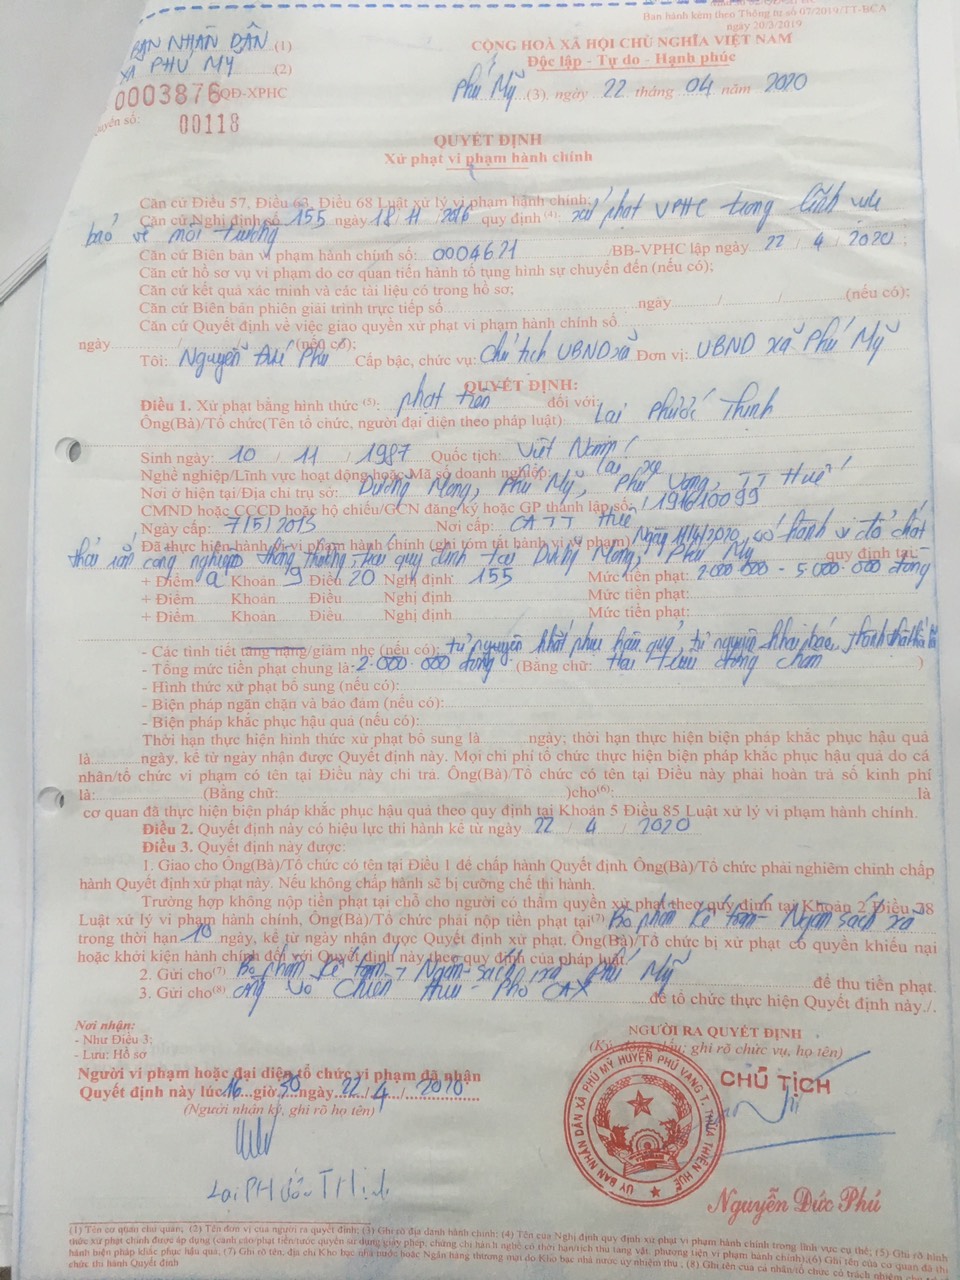 Ban hành kèm theo Thông tư số 07/2019/TT-BCA
ngày 20/3/2019
BAN NHÂN DÂN (1)
XÃ PHÚ MỸ (2)
CỘNG HOÀ XÃ HỘI CHỦ NGHĨA VIỆT NAM
Độc lập - Tự do - Hạnh phúc
0003876 QĐ-XPHC
Phú Mỹ (3), ngày 22 tháng 04 năm 2020
Quyển số: 00118
QUYẾT ĐỊNH
Xử phạt vi phạm hành chính
Căn cứ Điều 57, Điều 63, Điều 68 Luật xử lý vi phạm hành chính;
Căn cứ Nghị định số 155 ngày 18/11/2016 quy định (4) xử phạt VPHC trong lĩnh vực
bảo vệ môi trường
Căn cứ Biên bản vi phạm hành chính số: 0004621 /BB-VPHC lập ngày 22 / 4 / 2020;
Căn cứ hồ sơ vụ vi phạm do cơ quan tiến hành tố tụng hình sự chuyển đến (nếu có);
Căn cứ kết quả xác minh và các tài liệu có trong hồ sơ;
Căn cứ Biên bản phiên giải trình trực tiếp số ngày / / (nếu có);
Căn cứ Quyết định về việc giao quyền xử phạt vi phạm hành chính số
ngày / / (nếu có);
Tôi: Nguyễn Đức Phú Cấp bậc, chức vụ: Chủ tịch UBND xã Đơn vị: UBND xã Phú Mỹ
QUYẾT ĐỊNH:
Điều 1. Xử phạt bằng hình thức (5): phạt tiền đối với: Lại Phước Thịnh
Ông(Bà)/Tổ chức(Tên tổ chức, người đại diện theo pháp luật)
Sinh ngày: 10 / 11 / 1987 Quốc tịch: Việt Nam
Nghề nghiệp/Lĩnh vực hoạt động hoặc Mã số doanh nghiệp: lái xe
Nơi ở hiện tại/Địa chỉ trụ sở: Dưỡng Mong, Phú Mỹ, Phú Vang, TT Huế
CMND hoặc CCCD hoặc hộ chiếu/GCN đăng ký hoặc GP thành lập số: 191610099
Ngày cấp: 7/5/2015 Nơi cấp: CA TT Huế
Đã thực hiện hành vi vi phạm hành chính (ghi tóm tắt hành vi vi phạm) Ngày 2020 có hành vi đổ chất
thải rắn công nghiệp thông thường trái quy định tại Dưỡng Mong, Phú Mỹ quy định tại
+ Điểm a Khoản 9 Điều 20 Nghị định 155 Mức tiền phạt: 2.000.000 - 5.000.000 đồng
+ Điểm Khoản Điều Nghị định Mức tiền phạt:
+ Điểm Khoản Điều Nghị định Mức tiền phạt:
- Các tình tiết tăng nặng/giảm nhẹ (nếu có): tự nguyện khắc phục hậu quả, tự nguyện khai báo, thành thật hối lỗi
- Tổng mức tiền phạt chung là: 2.000.000 đồng (Bằng chữ: Hai triệu đồng chẵn )
- Hình thức xử phạt bổ sung (nếu có):
- Biện pháp ngăn chặn và bảo đảm (nếu có):
- Biện pháp khắc phục hậu quả (nếu có):
Thời hạn thực hiện hình thức xử phạt bổ sung là ngày; thời hạn thực hiện biện pháp khắc phục hậu quả
là ngày, kể từ ngày nhận được Quyết định này. Mọi chi phí tổ chức thực hiện biện pháp khắc phục hậu quả do cá
nhân/tổ chức vi phạm có tên tại Điều này chi trả. Ông(Bà)/Tổ chức có tên tại Điều này phải hoàn trả số kinh phí
là: (Bằng chữ: )cho(6): là
cơ quan đã thực hiện biện pháp khắc phục hậu quả theo quy định tại Khoản 5 Điều 85 Luật xử lý vi phạm hành chính.
Điều 2. Quyết định này có hiệu lực thi hành kể từ ngày 22 / 4 / 2020
Điều 3. Quyết định này được:
1. Giao cho Ông(Bà)/Tổ chức có tên tại Điều 1 để chấp hành Quyết định. Ông(Bà)/Tổ chức phải nghiêm chỉnh chấp
hành Quyết định xử phạt này. Nếu không chấp hành sẽ bị cưỡng chế thi hành.
Trường hợp không nộp tiền phạt tại chỗ cho người có thẩm quyền xử phạt theo quy định tại Khoản 2 Điều 78
Luật xử lý vi phạm hành chính, Ông(Bà)/Tổ chức phải nộp tiền phạt tại(7) Bộ phận kế toán - Ngân sách xã
trong thời hạn 10 ngày, kể từ ngày nhận được Quyết định xử phạt. Ông(Bà)/Tổ chức bị xử phạt có quyền khiếu nại
hoặc khởi kiện hành chính đối với Quyết định này theo quy định của pháp luật.
2. Gửi cho(7) Bộ phận kế toán - Ngân sách xã Phú Mỹ để thu tiền phạt.
3. Gửi cho(8) ông Võ Chiến - Phó CAX để tổ chức thực hiện Quyết định này./.
Nơi nhận:
- Như Điều 3;
- Lưu: Hồ sơ
NGƯỜI RA QUYẾT ĐỊNH
(Ký, đóng dấu; ghi rõ chức vụ, họ tên)
Người vi phạm hoặc đại diện tổ chức vi phạm đã nhận
Quyết định này lúc 16 giờ 30 ngày 22 / 4 / 2020
(Người nhận ký, ghi rõ họ tên)
CHỦ TỊCH
ỦY BAN NHÂN DÂN XÃ PHÚ MỸ HUYỆN PHÚ VANG T. THỪA THIÊN HUẾ
Lại Phước Thịnh
Nguyễn Đức Phú
(1) Tên cơ quan chủ quản; (2) Tên đơn vị của người ra quyết định; (3) Ghi rõ địa danh hành chính; (4) Tên của Nghị định quy định xử phạt vi phạm hành chính trong lĩnh vực cụ thể; (5) Ghi rõ hình
thức xử phạt chính được áp dụng (cảnh cáo/phạt tiền/tước quyền sử dụng giấy phép, chứng chỉ hành nghề có thời hạn/tịch thu tang vật, phương tiện vi phạm hành chính);(6) Ghi tên của cơ quan đã thi
hành biện pháp khắc phục hậu quả; (7) Ghi rõ tên, địa chỉ Kho bạc nhà nước hoặc Ngân hàng thương mại do Kho bạc nhà nước uỷ nhiệm thu; (8) Ghi tên của cá nhân/tổ chức có trách nhiệm
thi hành Quyết định